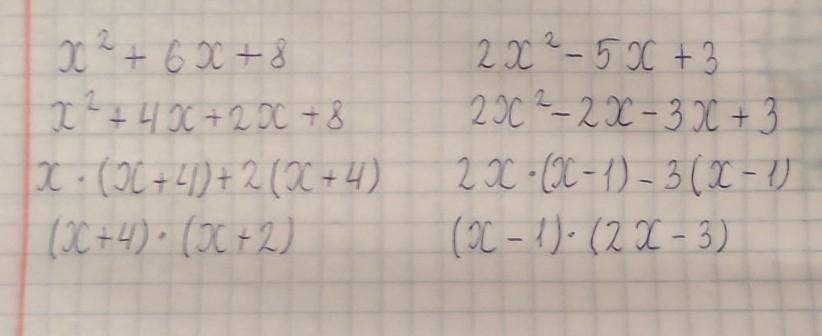 x² + 6x + 8
x² + 4x + 2x + 8
x · (x + 4) + 2(x + 4)
(x + 4) · (x + 2)
2x² - 5x + 3
2x² - 2x - 3x + 3
2x · (x - 1) - 3(x - 1)
(x - 1) · (2x - 3)